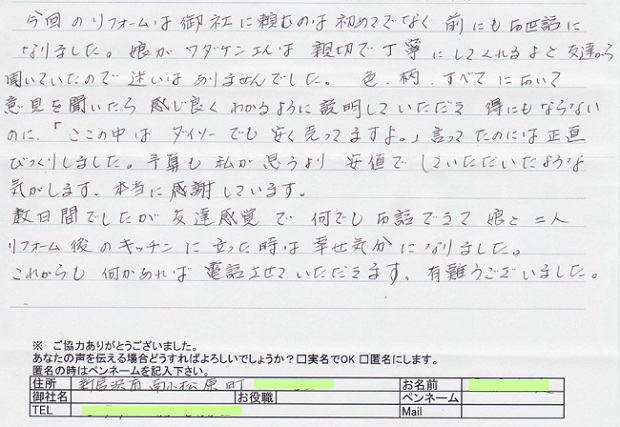 今回のリフォームは御社に頼むのは初めてでなく前にもお世話に
なりました。娘がワダケンさんは親切で丁寧にしてくれるよと友達から
聞いていたので迷いはありませんでした。色、柄、すべてにおいて
意見を聞いたら感じ良くわかるように説明していただき得にもならない
のに、「ここの中はダイソーでも安く売ってますよ。」言ってたのには正直
びっくりしました。予算も私が思うより安値でしていただいたような
気がします。本当に感謝しています。
数日間でしたが友達感覚で何でもお話できて娘と二人
リフォーム後のキッチンに立った時は幸せ気分になりました。
これからも何かあれば電話させていただきます。有難うございました。
※ ご協力ありがとうございました。
あなたの声を伝える場合どうすればよろしいでしょうか？□実名でOK □匿名にします。
匿名の時はペンネームを記入下さい。
住所 新居浜市南小松原町 お名前
御社名 お役職 ペンネーム
TEL Mail